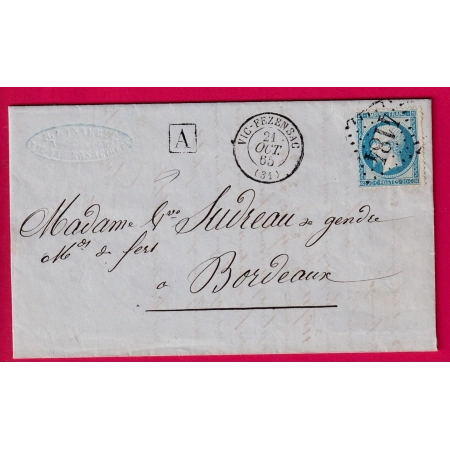 A
VIC-FEZENSAC
21
OCT.
65
(31)
4184
Madame Vve Sudreau & gendre
Mds de fers
a Bordeaux